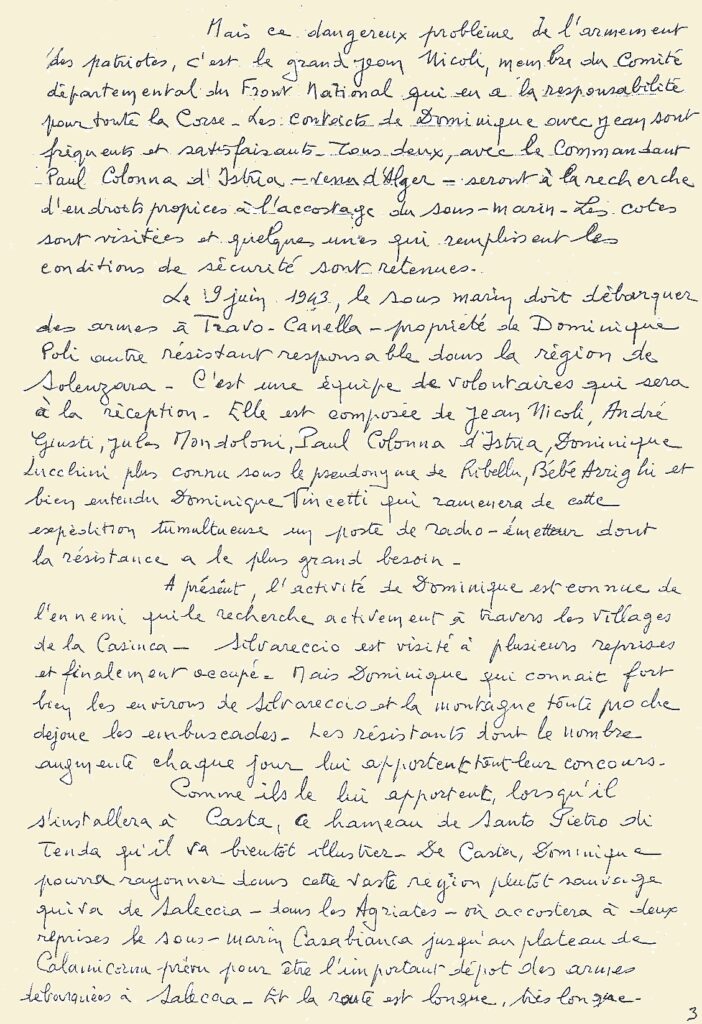 Mais ce dangereux problème de l'armement
des patriotes, c'est le grand Jean Nicoli, membre du Comité
départemental du Front National qui en a la responsabilité
pour toute la Corse - Les contacts de Dominique avec Jean sont
fréquents et satisfaisants - Tous deux, avec le Commandant
Paul Colonna d'Istria - venu d'Alger - seront à la recherche
d'endroits propices à l'accostage du sous-marin - Les cotes
sont visitées et quelques unes qui remplissent les
conditions de sécurité sont retenues -
Le 9 juin 1943, le sous marin doit débarquer
des armes à Travo-Canella - propriété de Dominique
Poli autre résistant responsable dans la région de
Solenzara - C'est une équipe de volontaires qui sera
à la réception - Elle est composée de Jean Nicoli, André
Giusti, Jules Mondoloni, Paul Colonna d'Istria, Dominique
Lucchini plus connu sous le pseudonyme de Ribellu, Bébé Arrighi et
bien entendu Dominique Vincetti qui ramenera de cette
expédition tumultueuse un poste de radio-émetteur dont
la résistance a le plus grand besoin -
A présent, l'activité de Dominique est connue de
l'ennemi qui le recherche activement à travers les villages
de la Casinca - Silvareccio est visité à plusieurs reprises
et finalement occupé - Mais Dominique qui connait fort
bien les environs de Silvareccio et la montagne toute proche
déjoue les embuscades - Les résistants dont le nombre
augmente chaque jour lui apportent tout leur concours -
Comme ils le lui apportent, lorsqu'il
s'installera à Casta, ce hameau de Santo Pietro di
Tenda qu'il va bientôt illustrer - De Casta, Dominique
pourra rayonner dans cette vaste region plutôt sauvage
qui va de Saleccia - dans les Agriates - où accostera à deux
reprises le sous-marin Casabianca jusqu'au plateau de
Calamicornu prévu pour être l'important dépot des armes
débarquées à Saleccia - Et la route est longue, très longue -
3